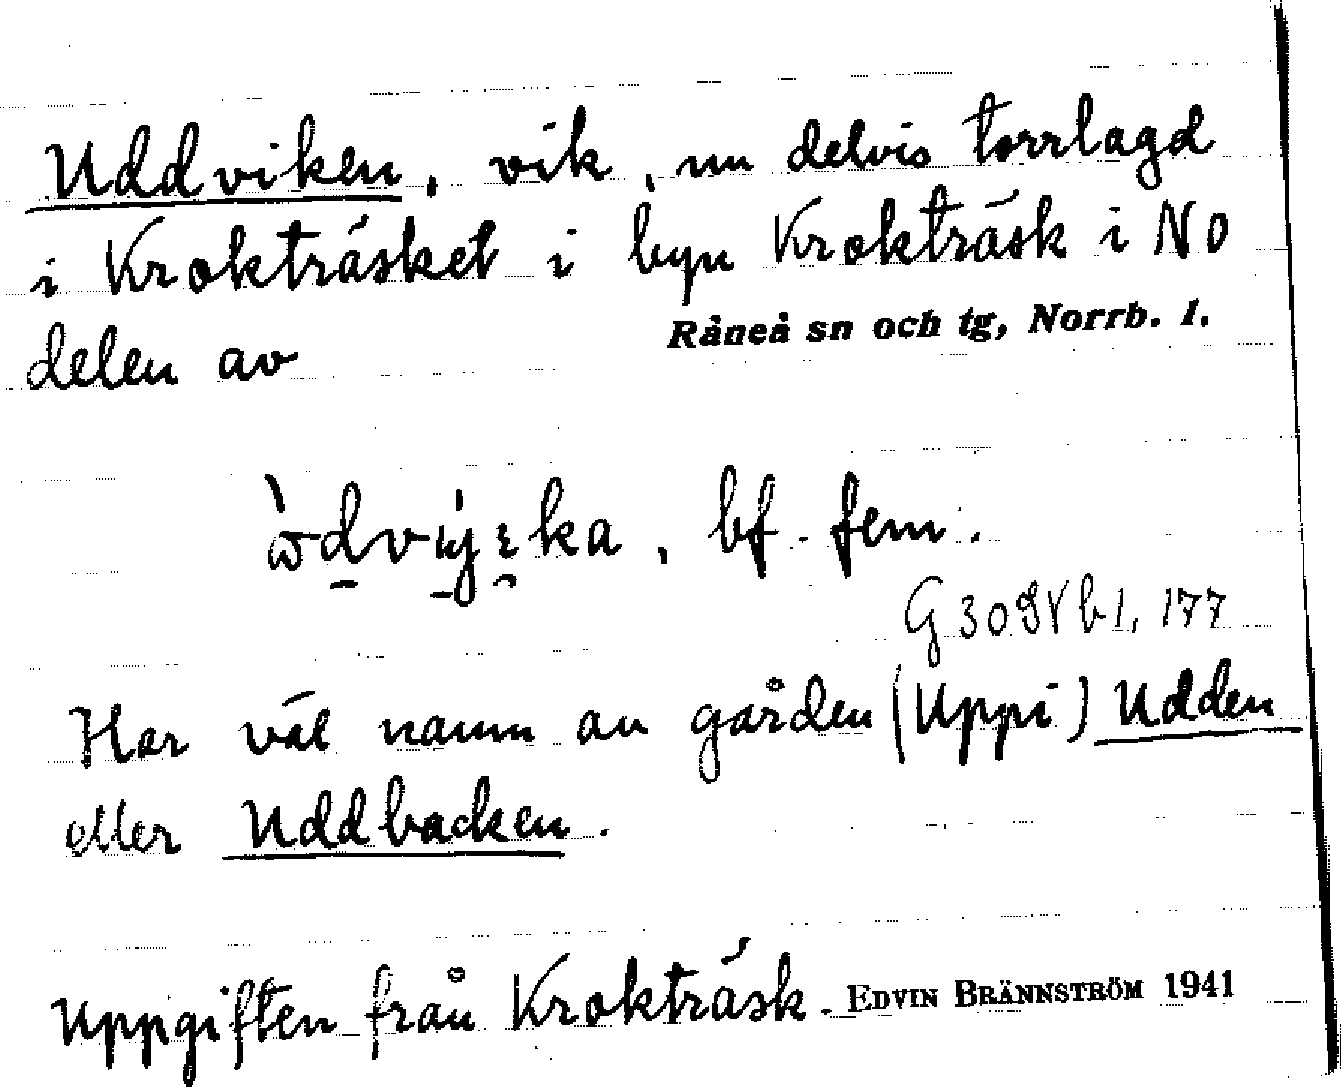 Uddviken, vik, nu delvis torrlagd
i Krokträsket i byn Krokträsk i NO
delen av Råneå sn och tg, Norrb. l.
bf. fem.
G 30 Nb 1, 177
Har väl namn av gården (Uppi) Udden
eller Uddbacken.
Uppgiften från Krokträsk. EDVIN BRÄNNSTRÖM 1941